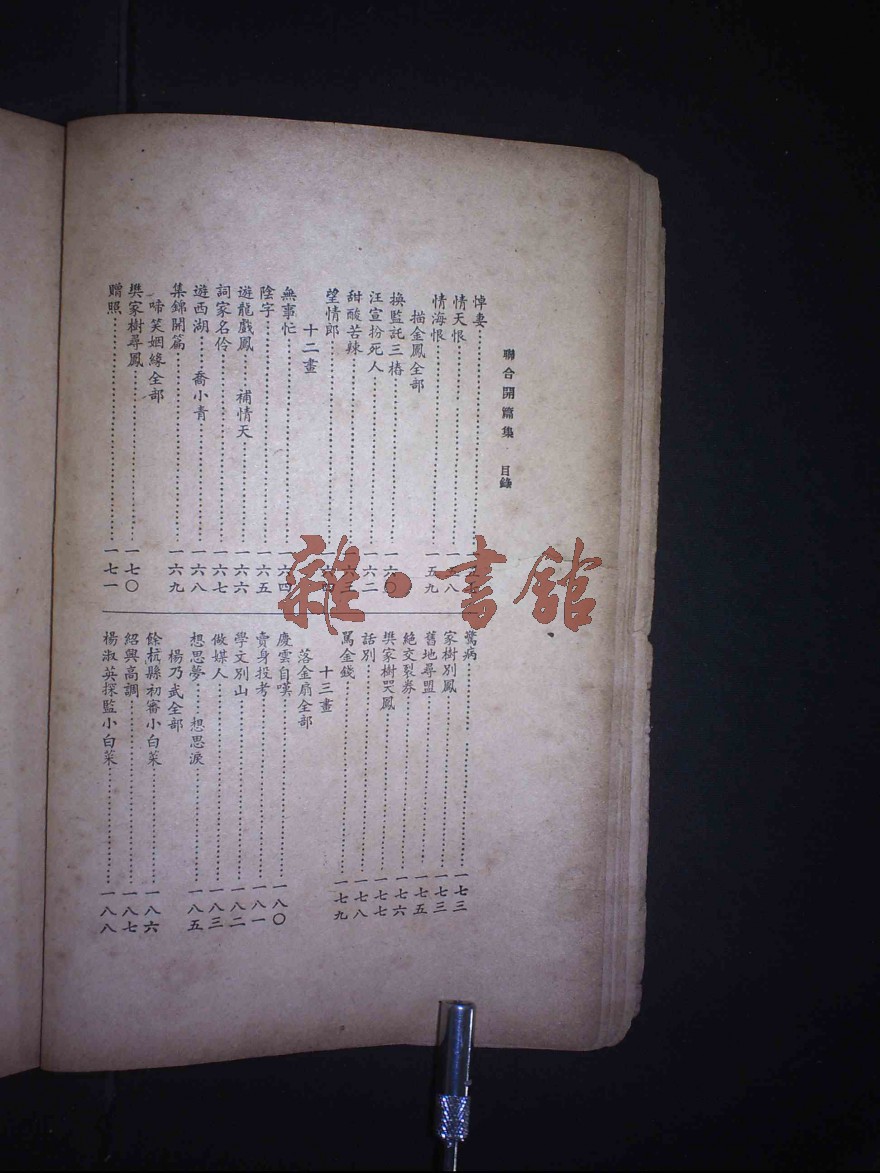 聯合開篇集 目錄
悼妻……………………一五七
情天恨……………………一五八
情海恨……………………一五九
描金鳳全部
換監託三樁……………………一六〇
汪宣扮死人……………………一六二
甜酸苦辣……………………一六三
望情郎……………………一六四
十二畫
無事忙……………………一六四
陰字……………………一六五
遊龍戲鳳……補情天……………………一六六
詞家名伶……………………一六七
遊西湖……喬小青……………………一六八
集錦開篇……………………一六九
啼笑姻緣全部
樊家樹尋鳳……………………一七〇
贈照……………………一七一
驚病……………………一七三
家樹別鳳……………………一七三
舊地尋盟……………………一七五
絕交裂券……………………一七六
樊家樹哭鳳……………………一七七
話別……………………一七八
罵金錢……………………一七九
十三畫
落金扇全部
慶雲自嘆……………………一八〇
賣身投考……………………一八一
學文別山……………………一八二
做媒人……………………一八三
想思夢……想思淚……………………一八五
楊乃武全部
餘杭縣初審小白菜……………………一八六
紹興高調……………………一八七
楊淑英探監小白菜……………………一八八
雜·書館